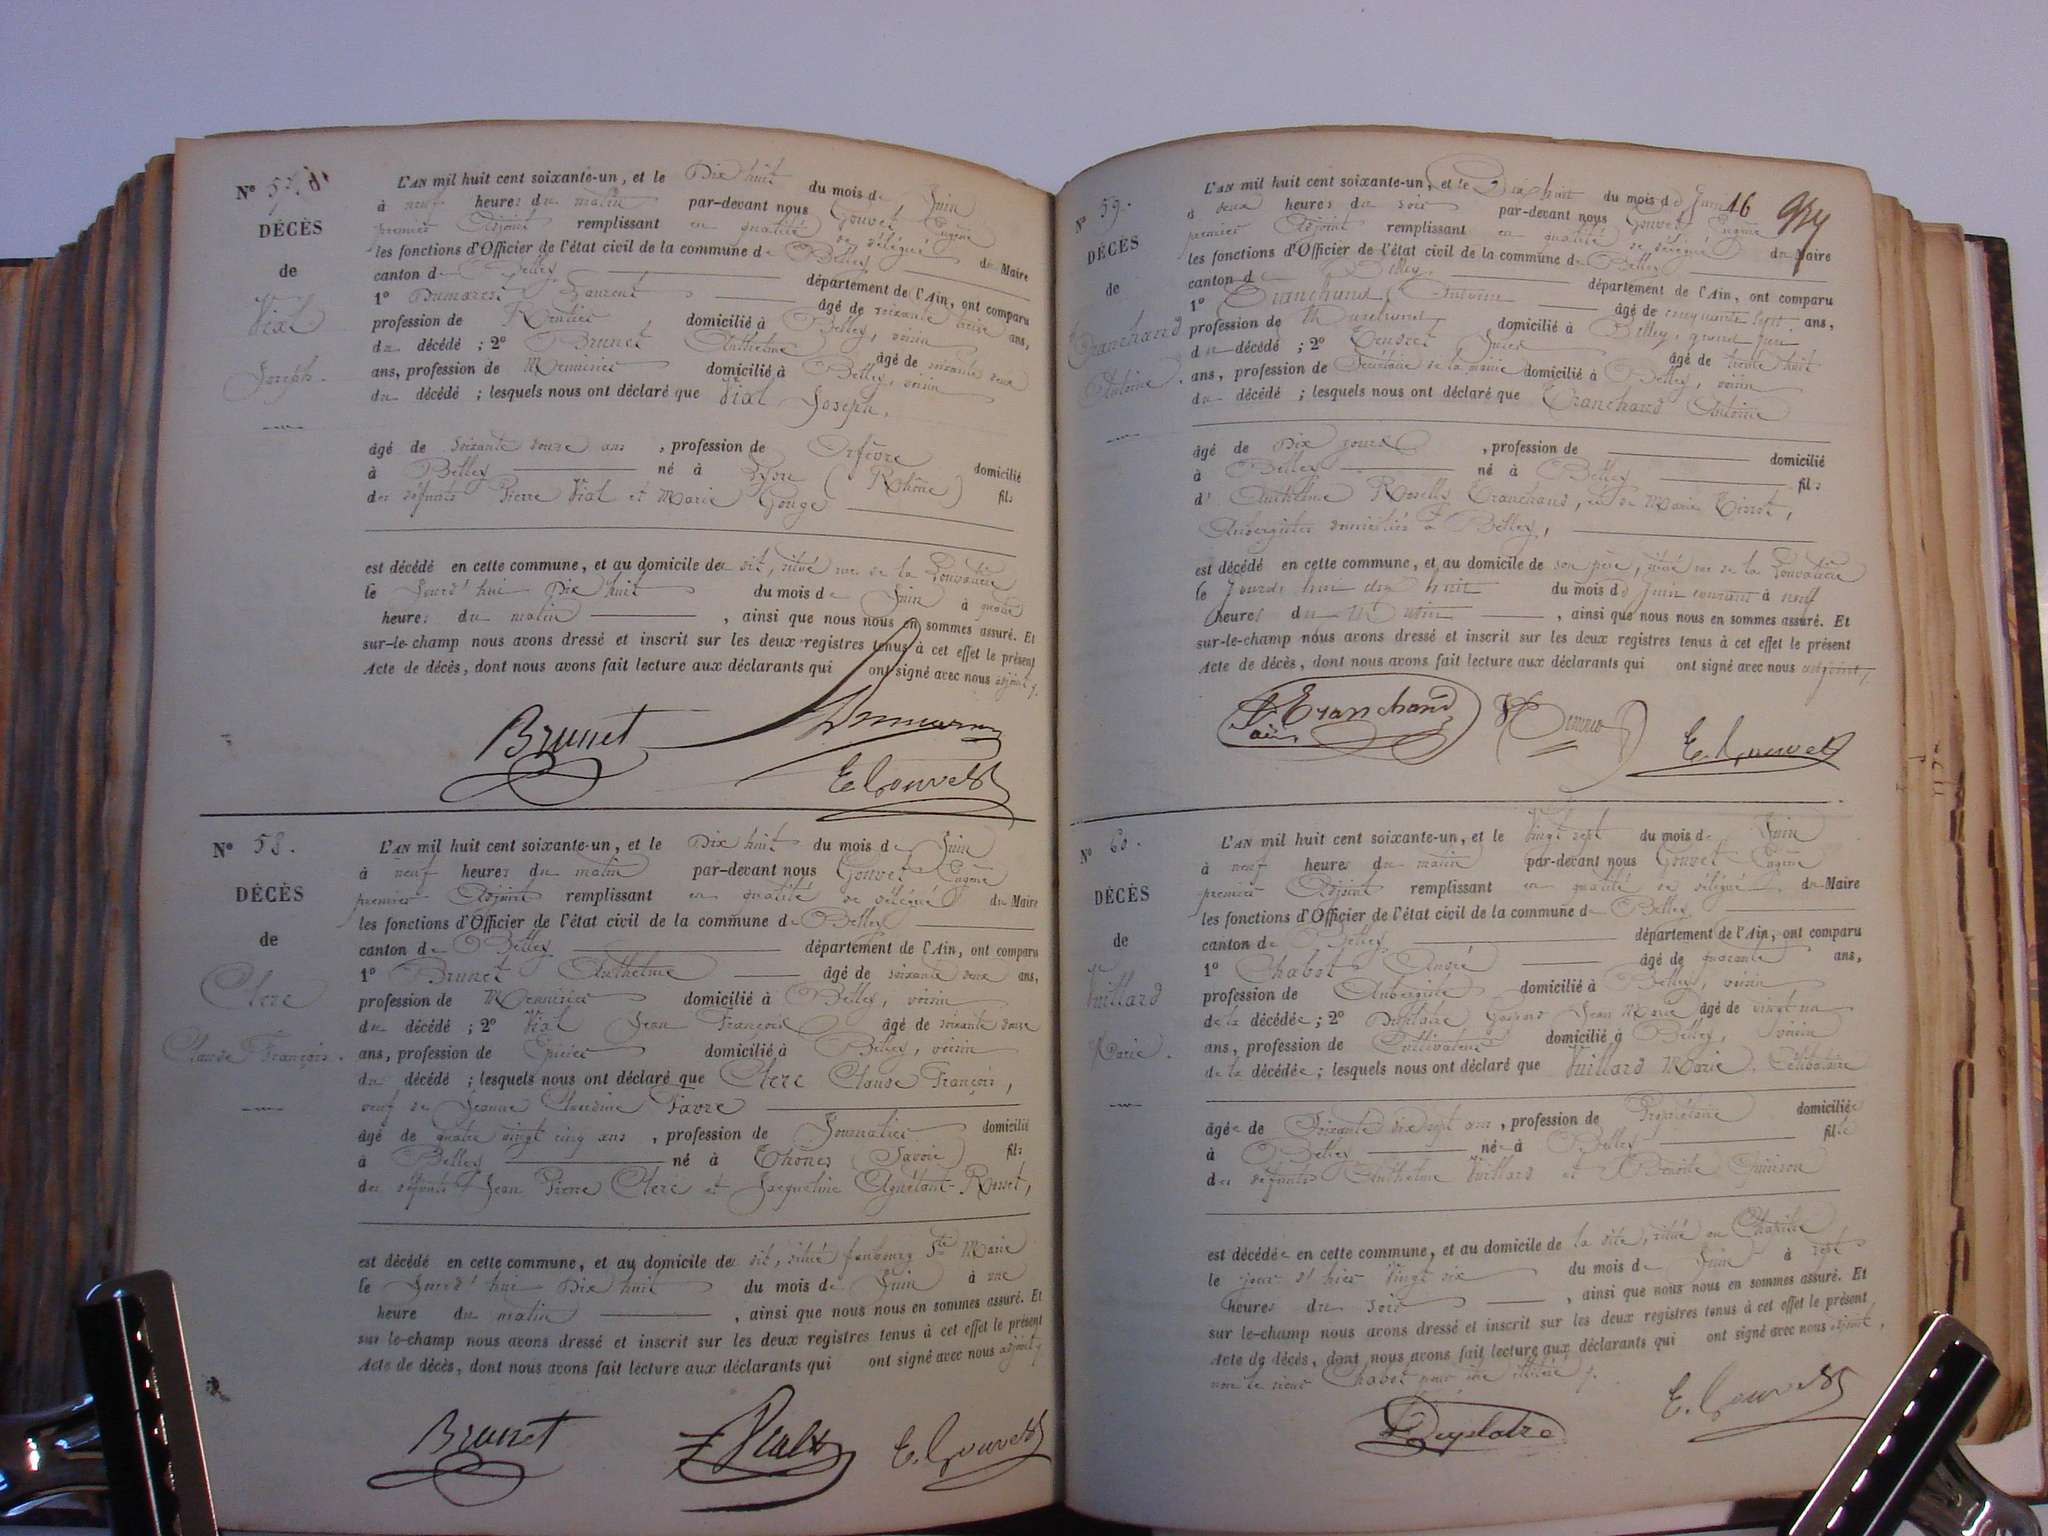 N° 57.
DÉCÈS
de
Vial
Joseph.
L'AN mil huit cent soixante-un, et le Dix huit du mois de Juin
à neuf heures du matin par-devant nous Gouvet Eugène
premier Adjoint remplissant en qualité de délégué du Maire
les fonctions d'Officier de l'état civil de la commune de Belley
canton de Belley département de l'Ain, ont comparu
1° Dumarest Laurent âgé de soixante treize ans,
profession de Rentier domicilié à Belley, voisin
du décédé ; 2° Brunet Anthelme âgé de soixante deux
ans, profession de Menuisier domicilié à Belley, voisin
du décédé ; lesquels nous ont déclaré que Vial Joseph,
âgé de soixante douze ans , profession de Orfèvre domicilié
à Belley né à Lyon (Rhône) fils
des défunts Pierre Vial et Marie Gouge
est décédé en cette commune, et au domicile du dit, situé rue de la
le Jourd'hui Dix huit du mois de Juin à quatre
heures du matin , ainsi que nous nous en sommes assuré. Et
sur-le-champ nous avons dressé et inscrit sur les deux registres tenus à cet effet le présent
Acte de décès, dont nous avons fait lecture aux déclarants qui ont signé avec nous adjoint
Brunet Dumarest
E. Gouvet
N° 58.
DÉCÈS
de
Clerc
Claude François.
L'AN mil huit cent soixante-un, et le Dix huit du mois de Juin
à neuf heures du matin par-devant nous Gouvet Eugène
premier Adjoint remplissant en qualité de délégué du Maire
les fonctions d'Officier de l'état civil de la commune de Belley
canton de Belley département de l'Ain, ont comparu
1° Brunet Anthelme âgé de soixante deux ans,
profession de Menuisier domicilié à Belley, voisin
du décédé ; 2° Vial Jean François âgé de soixante douze
ans, profession de Epicier domicilié à Belley, voisin
du décédé ; lesquels nous ont déclaré que Clerc Claude François,
veuf de Jeanne Claudine Favre
âgé de quatre vingt cinq ans , profession de Journalier domicilié
à Belley né à Thônes (Savoie) fils
des défunts Jean Pierre Clerc et Jacqueline Agnétant-Rosset,
est décédé en cette commune, et au domicile du dit, situé faubourg Ste Marie
le Jourd'hui Dix huit du mois de Juin à une
heure du matin , ainsi que nous nous en sommes assuré. Et
sur le-champ nous avons dressé et inscrit sur les deux registres tenus à cet effet le présent
Acte de décès, dont nous avons fait lecture aux déclarants qui ont signé avec nous adjoint
Brunet Vial E. Gouvet
16
N° 59.
DÉCÈS
de
Tranchand
Antoine.
L'AN mil huit cent soixante-un, et le Dix huit du mois de Juin
à deux heures du soir par-devant nous Gouvet Eugène
premier Adjoint remplissant en qualité de délégué du Maire
les fonctions d'Officier de l'état civil de la commune de Belley
canton de Belley département de l'Ain, ont comparu
1° Tranchand Antoine âgé de cinquante sept ans,
profession de domicilié à Belley, grand père
du décédé ; 2° âgé de trente huit
ans, profession de Secrétaire de la mairie domicilié à Belley, voisin
du décédé ; lesquels nous ont déclaré que Tranchand Antoine
âgé de Dix jours , profession de domicilié
à Belley né à Belley fils
d' Anthelme Tranchand, et de Marie Tissot,
Aubergistes domiciliés à Belley,
est décédé en cette commune, et au domicile de son père, situé rue de la
le Jourd'hui dix huit du mois de Juin courant à neuf
heures du Matin , ainsi que nous nous en sommes assuré. Et
sur-le-champ nous avons dressé et inscrit sur les deux registres tenus à cet effet le présent
Acte de décès, dont nous avons fait lecture aux déclarants qui ont signé avec nous adjoint
Tranchand E. Gouvet
N° 60.
DÉCÈS
de
Vuillard
Marie.
L'AN mil huit cent soixante-un, et le Vingt sept du mois de Juin
à neuf heures du matin par-devant nous Gouvet Eugène
premier Adjoint remplissant en qualité de délégué du Maire
les fonctions d'Officier de l'état civil de la commune de Belley
canton de Belley département de l'Ain, ont comparu
1° Chabot André âgé de quarante ans,
profession de Aubergiste domicilié à Belley, voisin
de la décédée ; 2° Duplatre Gaspard Jean Marie âgé de vingt un
ans, profession de Cultivateur domicilié à Belley, voisin
de la décédée ; lesquels nous ont déclaré que Vuillard Marie, Célibataire
âgée de Soixante dix sept ans , profession de Propriétaire domiciliée
à Belley née à Belley fille
des défunts Anthelme Vuillard et Benoîte
est décédée en cette commune, et au domicile de la dite, situé au
le jour d'hier Vingt six du mois de Juin à sept
heures du soir , ainsi que nous nous en sommes assuré. Et
sur le-champ nous avons dressé et inscrit sur les deux registres tenus à cet effet le présent
Acte de décès, dont nous avons fait lecture aux déclarants qui ont signé avec nous adjoint,
non le sieur Chabot pour être illétéré
Duplatre E. Gouvet